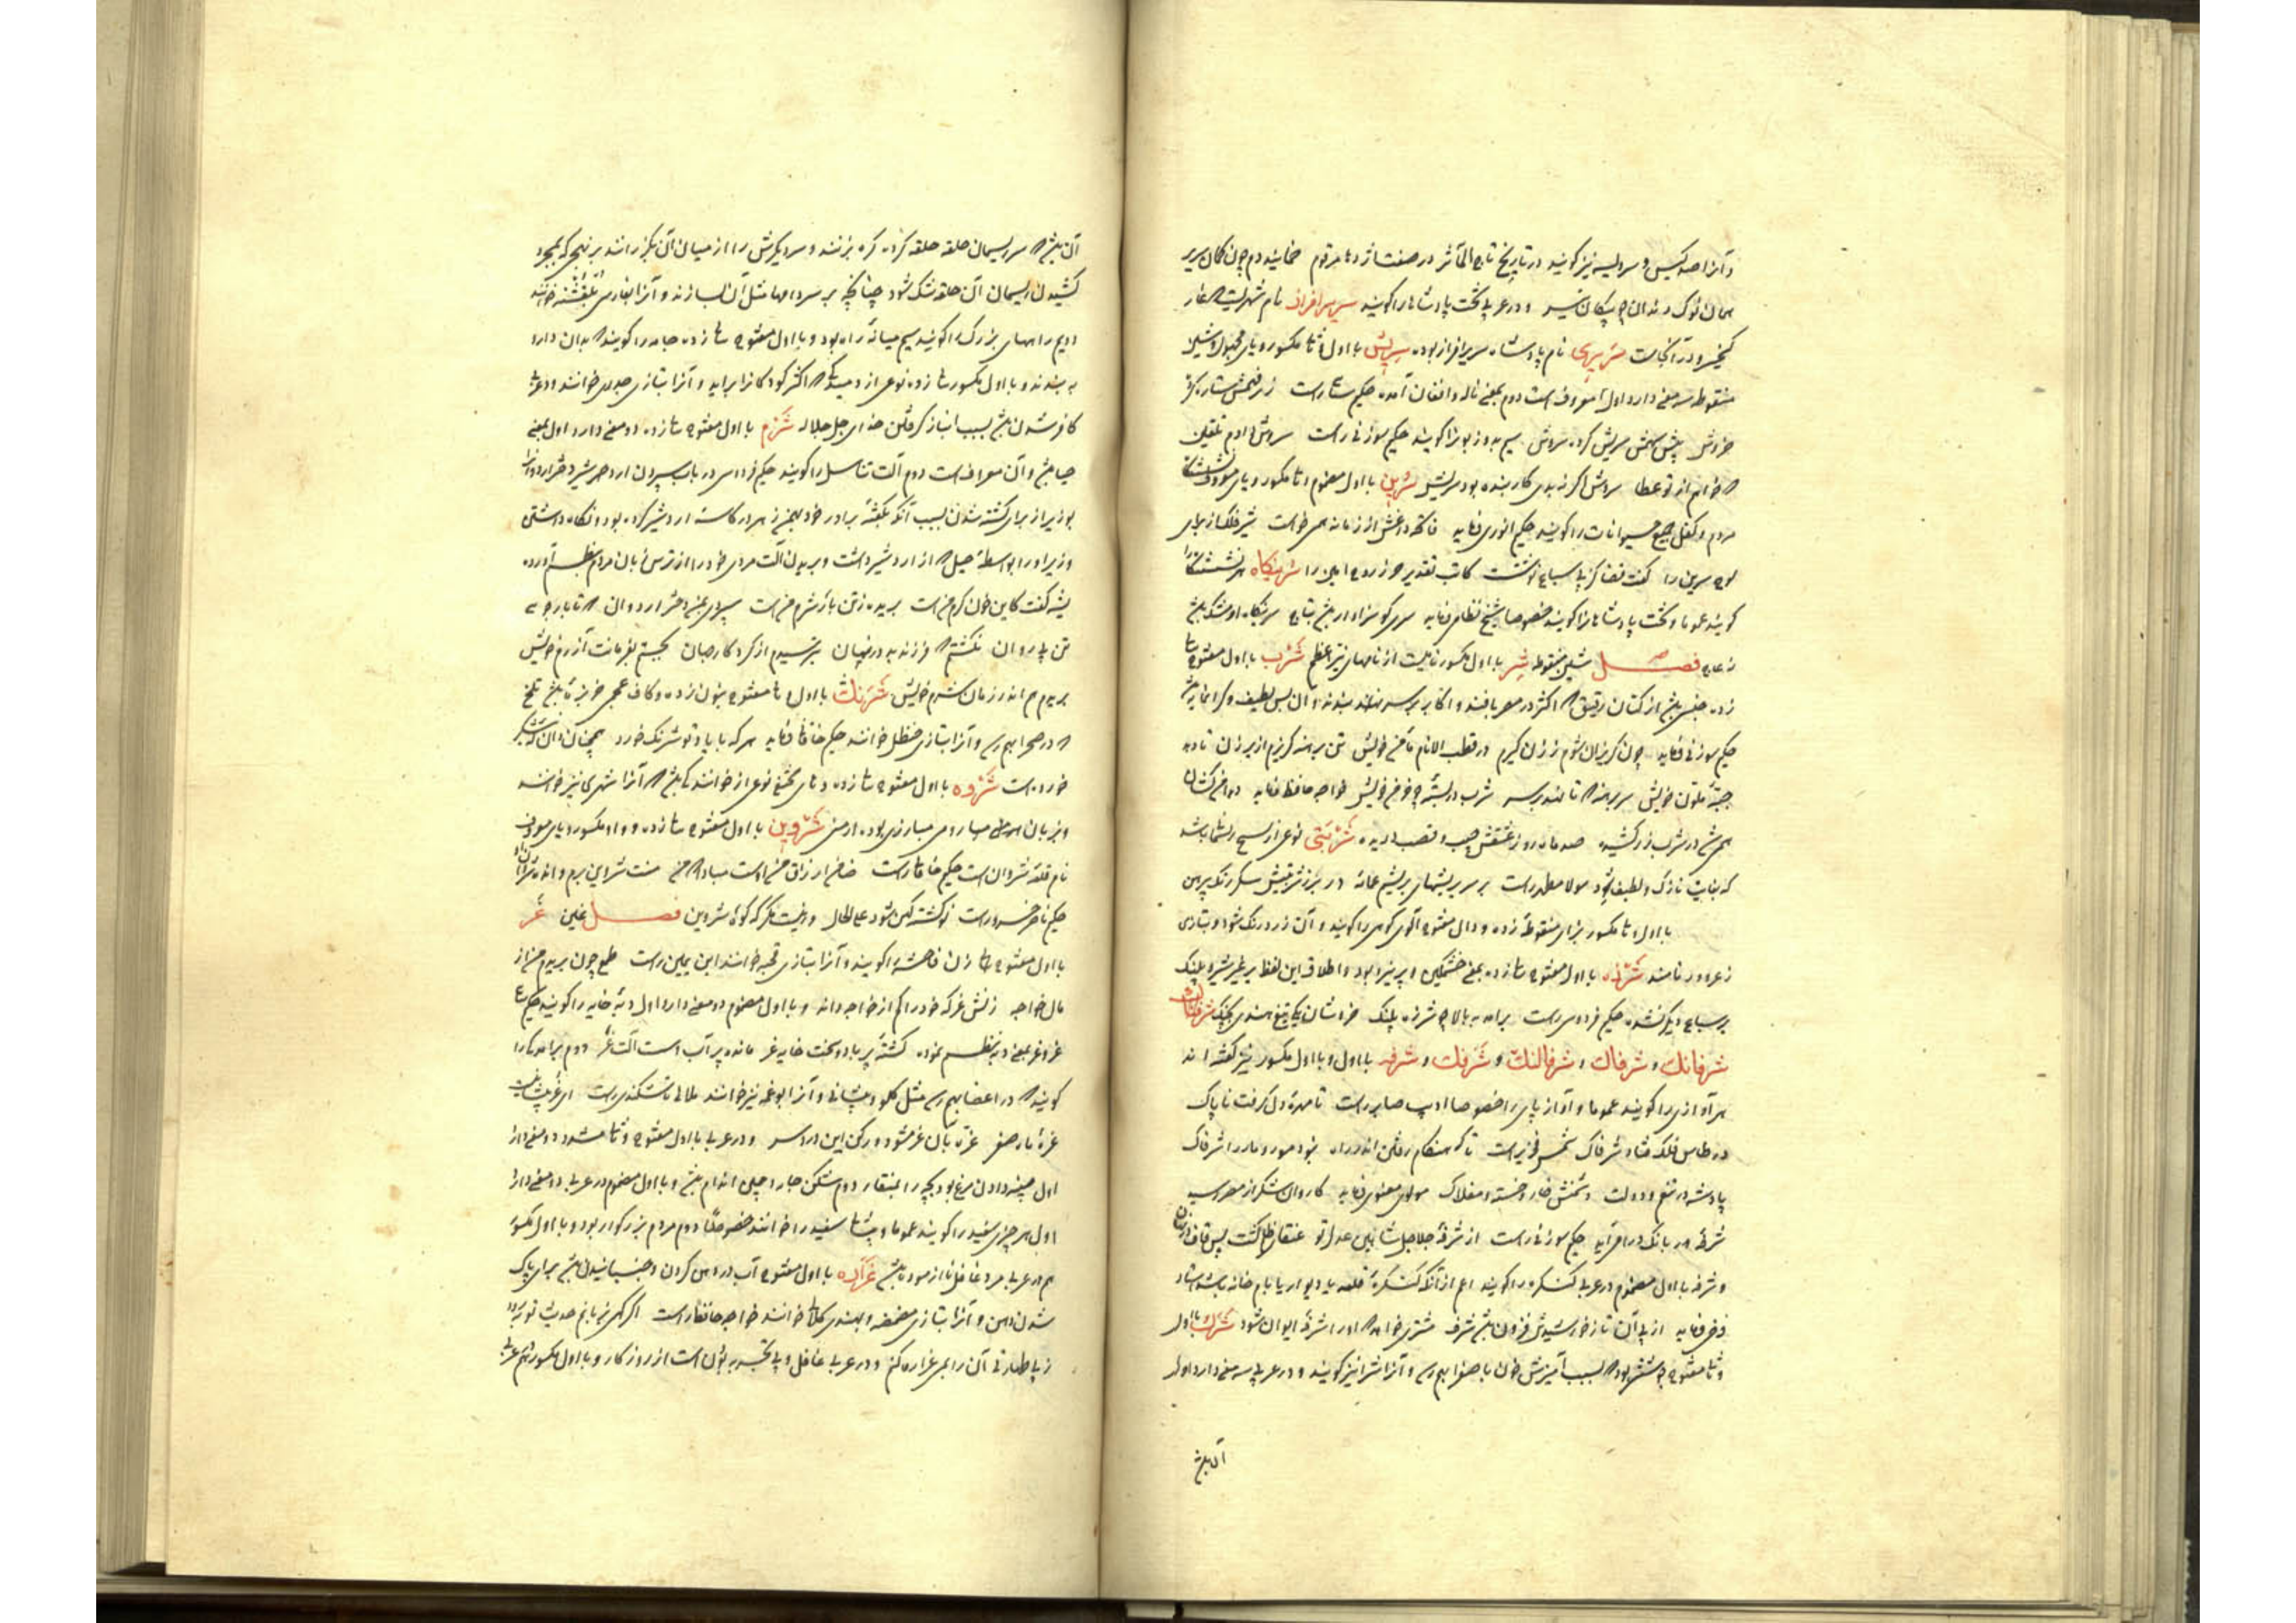 و آنرا صد کیس و سرویسه نیز کویند در تاریخ تاج المآثر در صفت اژدها مرقوم خمانیده دم چون کمان سریر
همان نوک دندان چو پیکان تیر و در عربی تخت پادشاهان را کویند سریر افراز نام شهریست غار
کیخسرو در آنجاست سریری نام پادشاه سریر افراز بوده سریش با اول و ثانی مکسور و یای مجهول و شین
منقوطه سه معنی دارد اول معروف است دوم بمعنی ناله و افغان آمده حکیم راست
خروش پیش سریش کرده سروش سیم بد و زبون را کویند حکیم سوزنی راست سروش دادم تلقین
که خواهم از تو عطا سروش اکر نه بدی کار بنده بود سریش سرین با اول مضموم و ثانی مکسور و یای معروف نشستگاه
مردم و کفل جمیع حیوانات را کویند حکیم انوری فرماید داغش از زمانه همی خواست شیر فلک از برای
لوح سرین را کفت قضا کز پی سباع نوشت کاتب تقدیر حرز روح امین را سرینگاه نشستنگاه را
کویند عموما و تخت پادشاهان را کویند خصوصا شیخ نظامی فرماید سری کو سزاوار باشد بتاج سرینگاه او مشک باشد
نه عاج فصل شین منقوطه شر با اول مکسور نامیست از نامهای نیر اعظم شرب با اول مفتوح بثانی
زده جنسی باشد از کتان رقیق که اکثر در مصر بافند و اکابر بر سر بندند و آن بس لطیف و کرانمایه باشد
حکیم سوزنی فرماید چون کریزان شوم ز زن کیرم در قطب الانام مأمن خویش تن برهنه کریزم از بر زن نادیده
جبه ملون خویش سر برهنه که تا نهند بر سر شرب در بسته خویش خواجه حافظ فرماید دامن کشان
همی شد در شرب زر کشیده صد ماه رو ز عشقش جیب و قصب دریده شربتی نوعی از نسیج باشد
که بغایت نازک و لطیف بود مولانا مطهر راست بر سر
با اول و ثانی مکسور بزای منقوطه زده و دال مفتوح آلوی کوهی را کویند و آن زرد رنک شود و بتازی
زعرور نامند شرزه با اول مفتوح بثانی زده بمعنی خشمکین و پرنیرو بود و اطلاق این لفظ بر غیر شیر و پلنک
بر سباع دیکر نشده حکیم فردوسی راست برآمد به بالا چو شرزه پلنک خروشان یکی تیغ هندی بچنک شرفاک
شرفانک و شرفاک و شرفالنک و شرفک و شرفه با اول و با اول مکسور نیز کفته اند
هر آوازی را کویند عموما و آواز پای را خصوصا ادیب صابر راست تا مهره دل کرفت ناپاک
در طاس فلک فتاد شرفاک شمس فخری راست تا که هنکام رفتن اندر راه نبود مور و مار را شرفاک
پادشه در تنعم و دولت دشمنش خار و خسته و مفلاک مولوی معنوی فرماید کاروان شکر از مصر رسید
شرفه بانک درا می آید حکیم سوزنی راست از شرفه جلاجل شاهین عدل تو عنقای ظلم کشت پس قاف
و شرفه با اول مضموم در عربی کنکره را کویند اعم از آنکه کنکره قلعه یا دیوار یا بام خانه باشد استاد
فرخی فرماید از پی آن تا ز خورشیدش فزون باشد شرف مشتری خواهد که او را شرفه ایوان شود شرک با اول
و ثانی مفتوح جوششی بود که بسبب آمیزش خون با صفرا بهم رسد و آنرا شرا نیز کویند و در عربی سه معنی دارد اول
آن باشد
آن باشد که سر ریسمان حلقه حلقه کرده کره بزنند و سر دیکرش را از میان آن بکذرانند بر نهجی که بمجرد
کشیدن ریسمان آن حلقه تنک شود چنانچه بر سر دامها مثل آن بسازند و آنرا بفارسی خوانند
دویم راههای بزرک را کویند سیم میانه راه بود و با اول مفتوح بثانی زده جامه را کویند که بدان دارو
به بندند و با اول مکسور بثانی زده نوعی از دمیدکی که اکثر کودکانرا براید و آنرا بتازی جدری خوانند و در عربی
کافر شدن باشد بسبب انباز کرفتن خدای جل جلاله شرم با اول مفتوح بثانی زده دو معنی دارد اول بمعنی
حیا باشد و آن معروف است دوم آلت تناسل را کویند حکیم فردوسی در باب سپردن اردشیر دختر اردوانرا
بوزیر از برای کشته شدن بسبب آنکه بکفته برادر خود زهر در کاسه اردشیر کرده بود و نکاه داشتن
وزیر او را بواسطه حملی که از اردشیر داشت و بریدن آلت مردی خود را از ترس زبان مردم بنظم آورده
بشه کفت کاین خون کرم من است بریده ز تن باز شرم من است سپردی بمن دختر اردوان که تا بازخواهی
تن بی روان نکشتم که فرزند بد در نهان بترسیدم از کردکار جهان بجستم بفرمانت آزرم خویش
بریدم هم اندر زمان شرم خویش شرنک با اول و ثانی مفتوح بنون زده و کاف عجمی خربزه باشد تلخ
که در صحرا بهم رسد و آنرا بتازی حنظل خوانند حکیم خاقانی فرماید هر که با یاد تو شرنک خورد همچنان دان که شکر
خورده است شروه با اول مفتوح بثانی زده و های مختفی نوعی از خوانندکی باشد که آنرا شهری نیز خوانند
و بزبان اهل مبارزی بود ارمنی شروین با اول مفتوح بثانی زده و واو مکسور و یای معروف
نام قلعه شروان است حکیم خاقانی راست ضامن ارزاق من اوست مبادا که من منت شروین برم
حکیم ناصر خسرو راست نو کشته کهن شود علی الحال ور نیست مکر که کوه شروین فصل غین غر
با اول مفتوح زن فاحشه را کویند و آنرا بتازی قحبه خوانند ابن یمین راست طمع چون بریدم من از
مال خواجه زنش غر که خود را کم از خواجه داند و با اول مضموم دو معنی دارد اول دبه خایه را کویند
غر بمعنی دبه نظم نموده کشته پر باد و سخت خایه غر مانده پر آب و آلت غر دوم برآمدکی را
کویند که در اعضا بهم رسد مثل کلو و پیشانی و آنرا بوغمه نیز خوانند
غره ماه صفر غره بآن غر مشو دورکن این درد سر و در عربی با اول مفتوح و ثانی مشدد دو معنی دارد
اول چینه دادن مرغ بود بچه را بمنقار دوم شکن جامه و چین اندام باشد و با اول مضموم در عربی دو معنی دارد
اول هر چیزی سفید را کویند عموما و پیشانی سفید را خوانند خصوصا دوم مردم بزرکوار بود و با اول مکسور
هم در عربی مرد غافل ناآزموده باشد غراره با اول مفتوح آب در دهن کردن و جنبانیدن باشد برای پاک
شدن دهن و آنرا بتازی مضمضه و بهندی کلی خوانند خواجه حافظ راست اکر کهی بزبانم حدیث توبه رود
ز بی طهارتی آن را بمی غراره کنم و در عربی غافل و بی تجربه بودن است از روزکار و با اول مکسور هم عربی